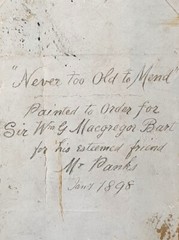 "Never too Old to Mend"
Painted to Order for
Sir Wm G Macgregor Bart
for his esteemed friend
Mr Panks
Jany 1898